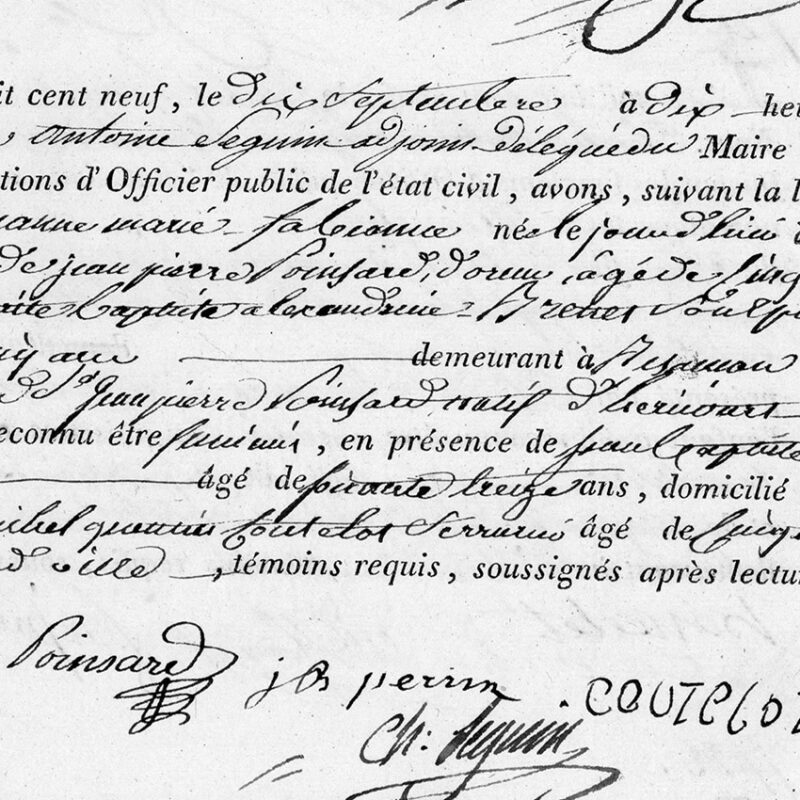 it cent neuf, le dix Septembre à dix heu
, antoine Seguin adjoint délégué du Maire
tions d'Officier public de l'état civil, avons, suivant la l
anne marie fabienne née le jour d'hier
de jean pierre Poinsard, d'orne, âgé de Cinq
Baptiste alexandrine
ans demeurant à Besancon
De Sr Jean pierre Poinsard natif d'hericourt
econnu être féminin, en présence de jean baptiste
âgé de soixante treize ans, domicilié
quentin Coutelot Serrurier âgé de Cinq
d. ville, témoins requis, soussignés après lectur
Poinsard j B perrin COUTELOT
Ch: Seguin